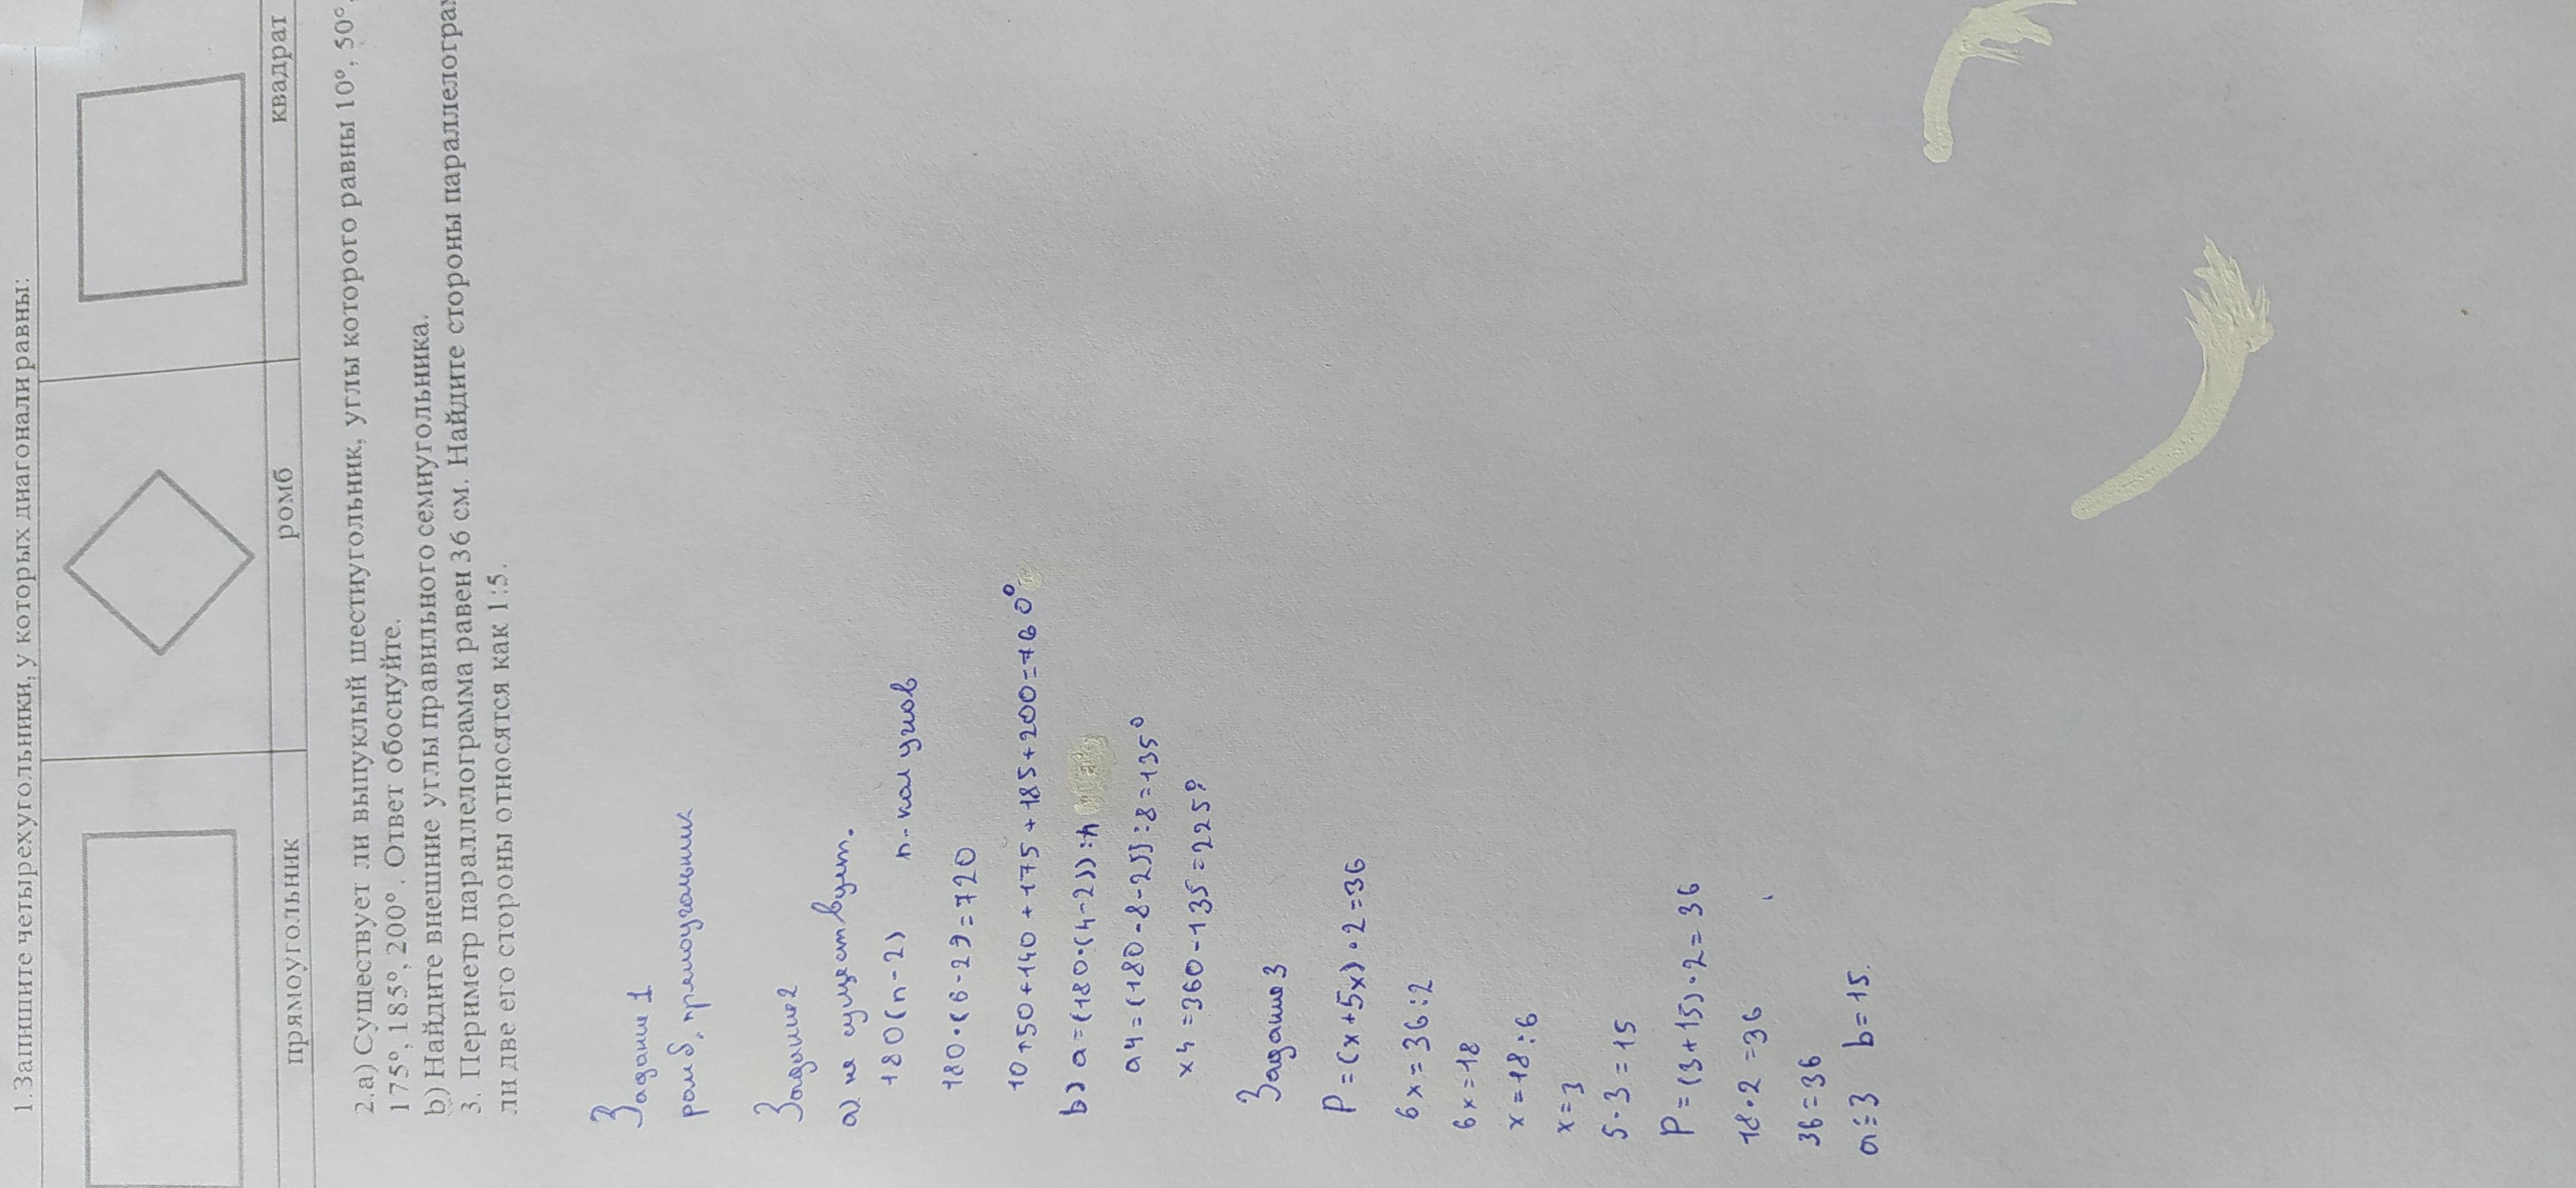 1.Запишите четырехугольники, у которых диагонали равны:
прямоугольник ромб квадрат
2.а) Существует ли выпуклый шестиугольник, углы которого равны 10°, 50°,
175°, 185°, 200°. Ответ обоснуйте.
b) Найдите внешние углы правильного семиугольника.
3. Периметр параллелограмма равен 36 см. Найдите стороны параллелограм
ли две его стороны относятся как 1:5.
Задание 1
ромб, прямоугольник
Задание 2
а) не существует.
180(n-2) n-кол углов
180·(6-2)=720
10+50+140+175+185+200=760°
b) a=(180·(4-2)):n
a4=(180-8-2)]:8=135°
x4=360-135=225°
Задание 3
P=(x+5x)·2=36
6x=36:2
6x=18
x=18:6
x=3
5·3=15
P=(3+15)·2=36
18·2=36
36=36
a=3 b=15.